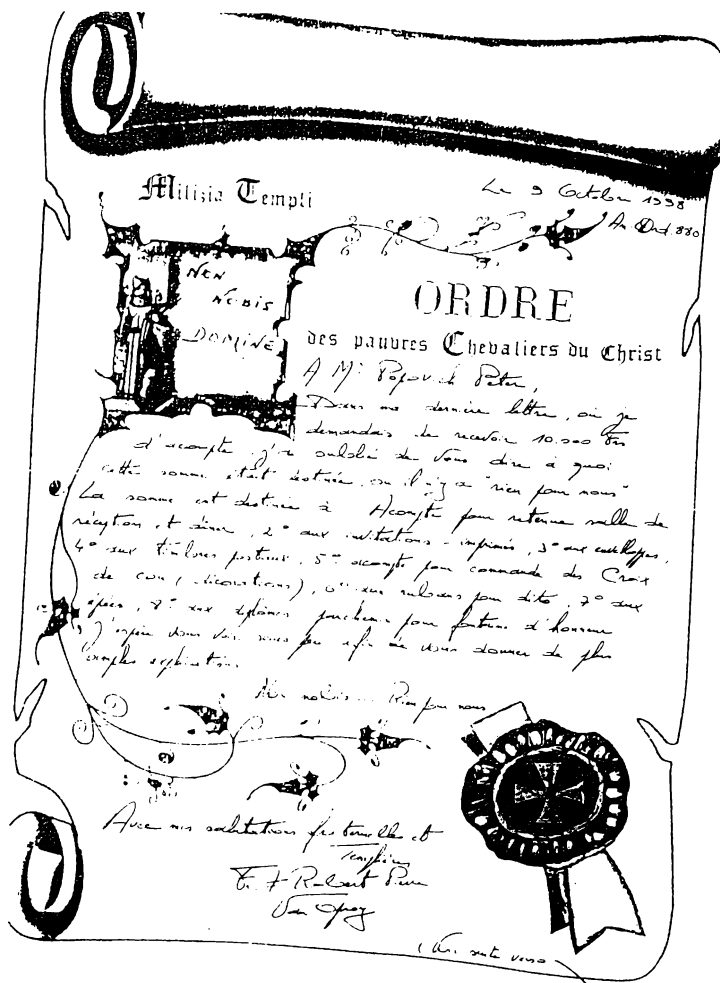 Militia Templi
Le 9 Octobre 1998
An Ord. 880
NON
NOBIS
DOMINE
ORDRE
des pauvres Chevaliers du Christ
A Mr Popovich Peter,
Dans ma dernière lettre, où je
demandais de recevoir 10.000 Frs
d'acompte j'ai oublié de vous dire à quoi
cette somme était destinée, car il n'y a "rien pour nous"
La somme est destinée à Acompte pour retenue salle de
réception et diner, 2° aux invitations - imprimés, 3° aux enveloppes,
4° aux timbres postaux, 5° acompte pour commande des Croix
de cou (décorations), 6° aux rubans pour dito, 7° aux
épées, 8° aux diplômes parchemin pour
J'espère vous voir sous peu afin de vous donner de plus
amples explications
Non nobis ... Rien pour nous
Avec mes salutations fraternelles et
Templières
Fr. + Robert Pierre
Van
(Voir suite verso